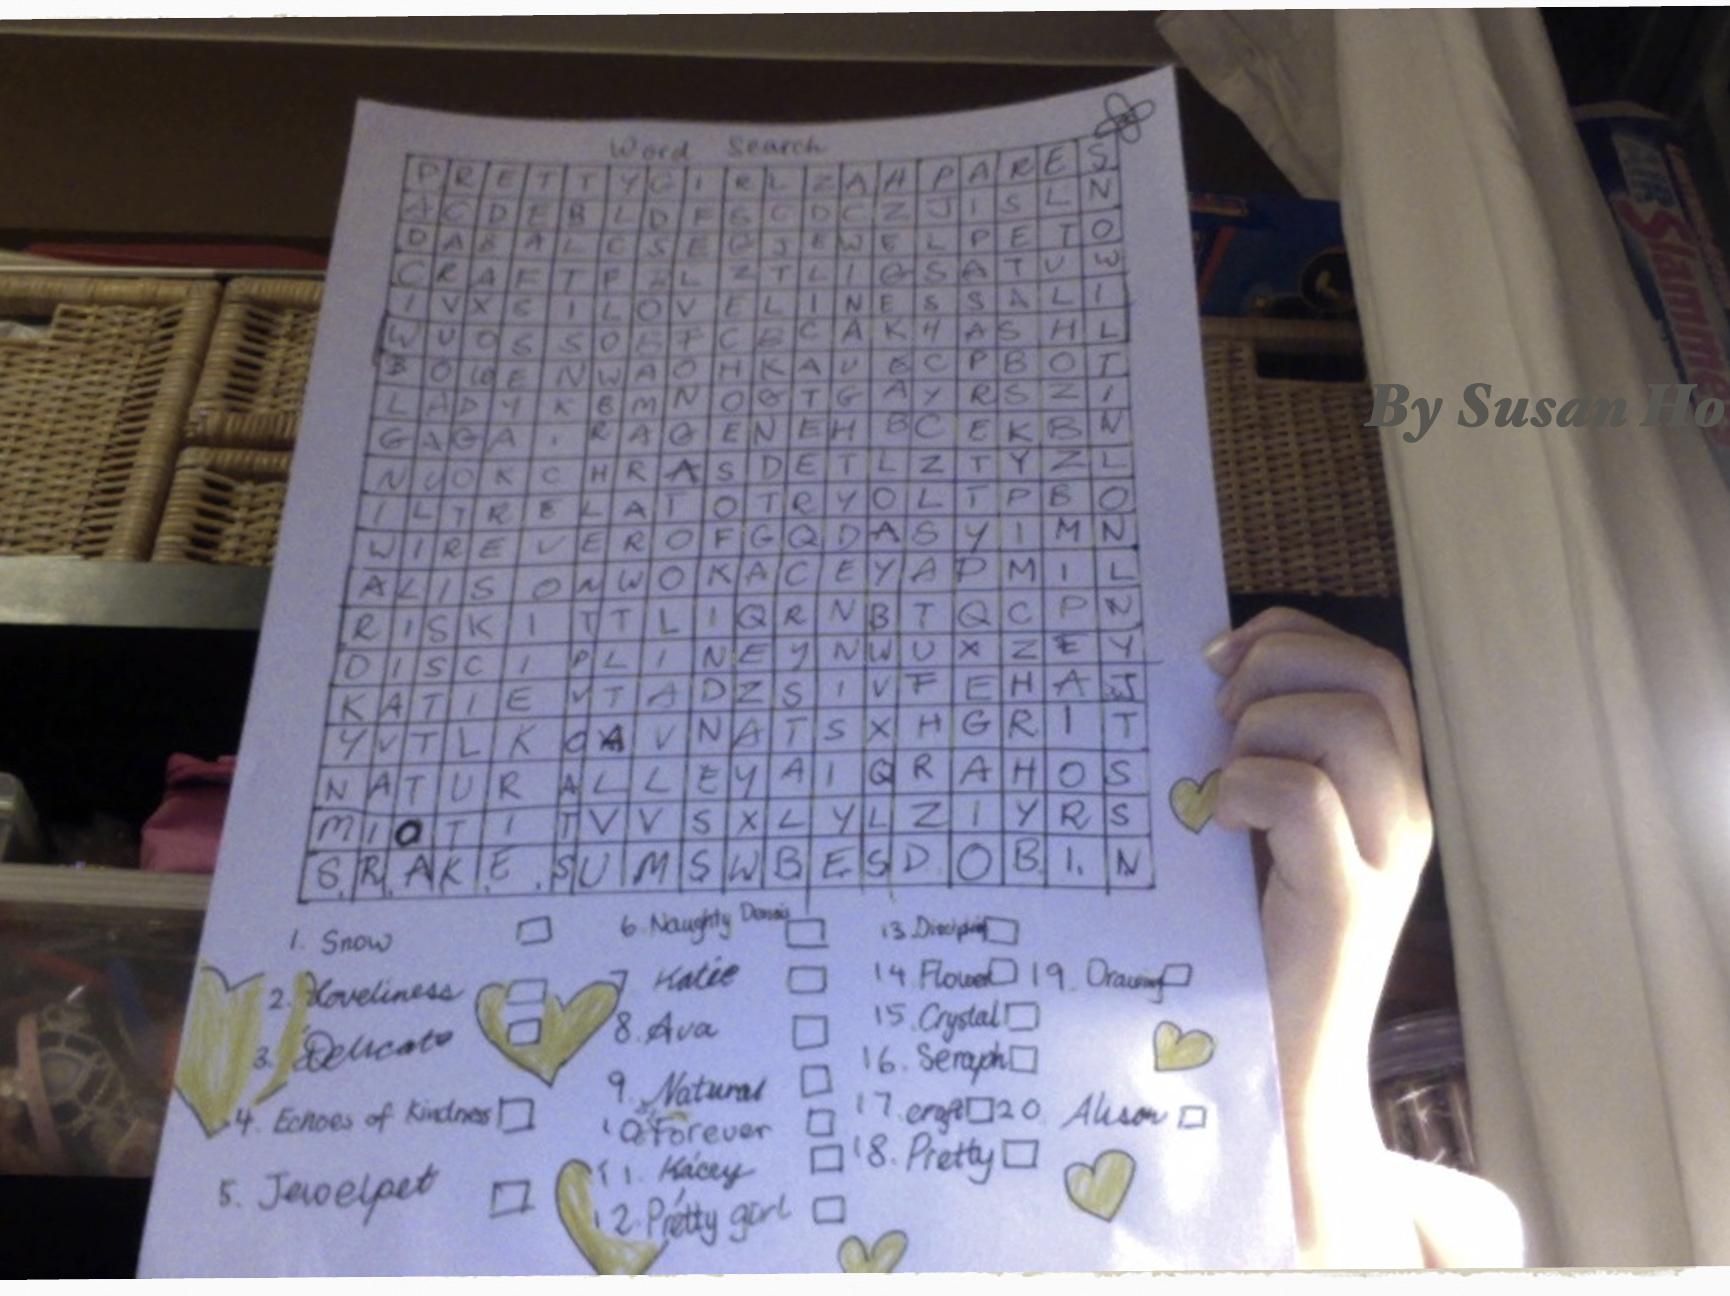 Word Search
P R E T T Y G I R L Z A H P A R E S
A C D E B L D F G C D C Z J I S L N
D A B A L C S E G J E W E L P E T O
C R A F T F E L Z T L I G S A T U W
I V X S I L O V E L I N E S S A L I
W U O S S O E F C E C A K H A S H L
L A D Y K B M N O G T G A Y R S Z I
G A G A I R A G E N E H B C E K B N
N U O K C H R A S D E T L Z T Y Z L
I L T R E L A T O T R Y O L T P B O
W I R E V E R O F G Q D A S Y I M N
A L I S O N W O K A C E Y A P M I L
R I S K I T T L I Q R N B T Q C P N
D I S C I P L I N E Y N W U X Z E Y
K A T I E V T A D Z S I V F E H A J
Y V T L K O A V N A T S X H G R I T
N A T U R A L L E Y A I Q R A H O S
M I O T I T V V S X L Y L Z I Y R S
S R A K E S U M S W B E S D O B I N
1. Snow
2. Loveliness
3. Delicate
4. Echoes of Kindness
5. Jewelpet
6. Naughty
7 Katie
8. Ava
9. Natural
10 Forever
11. Kacey
12. Pretty girl
13
14 Flower
15. Crystal
16. Seraph
17. craft
18. Pretty
19. Drawing
20 Alison
By Susan Ho
AIR
Slammer